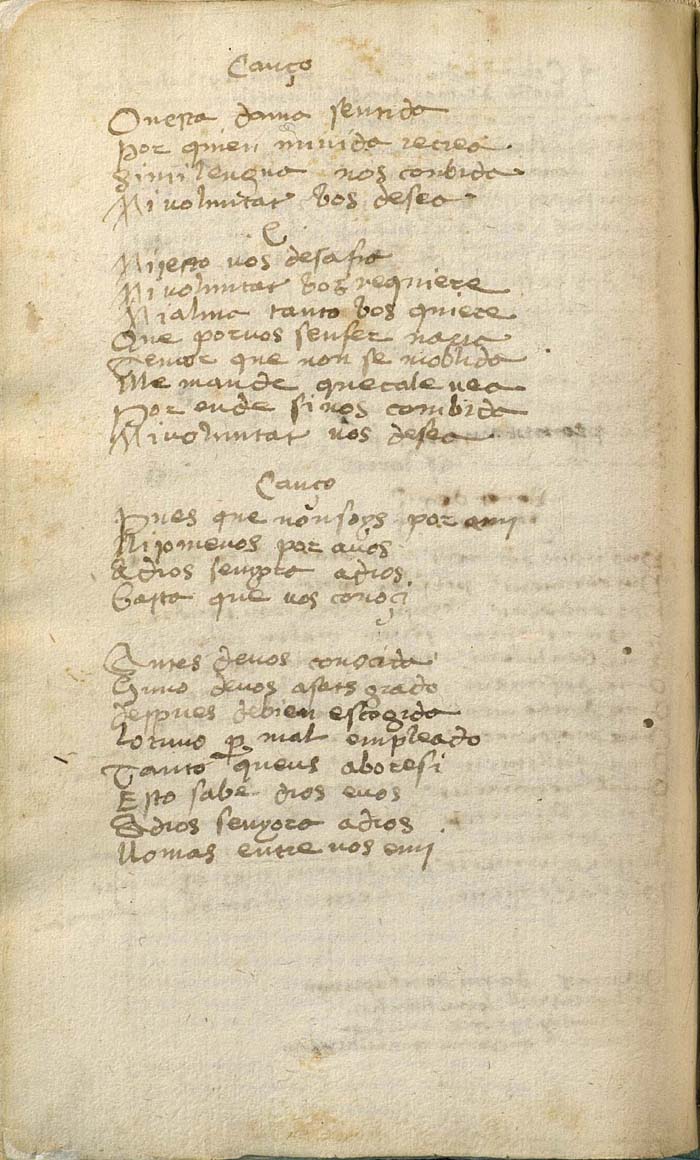 Canço
Onesta dama sentida
Por quien mi vida recrea
Si mi lengua nos conbida
Mi voluntat vos desea
Mi jesto vos desafia
Mi voluntat vos requiere
Mi alma tanto vos quiere
Que por vos senfer
Temor que non se moblida
Me mande que cale vea
Por ende si nos combida
Mi voluntat vos desea
Canço
Pues que non soys por mi
Ni jo menos por avos
Adios senyora adios
Basta que vos conoçi
Antes de vos conocida
huuo de vos asats grado
despues de bien escogida
lo tuuo por mal empleado
Tanto queus aboresi
Esto sabe dios e vos
Adios senyora adios
No mas entre vos e mi